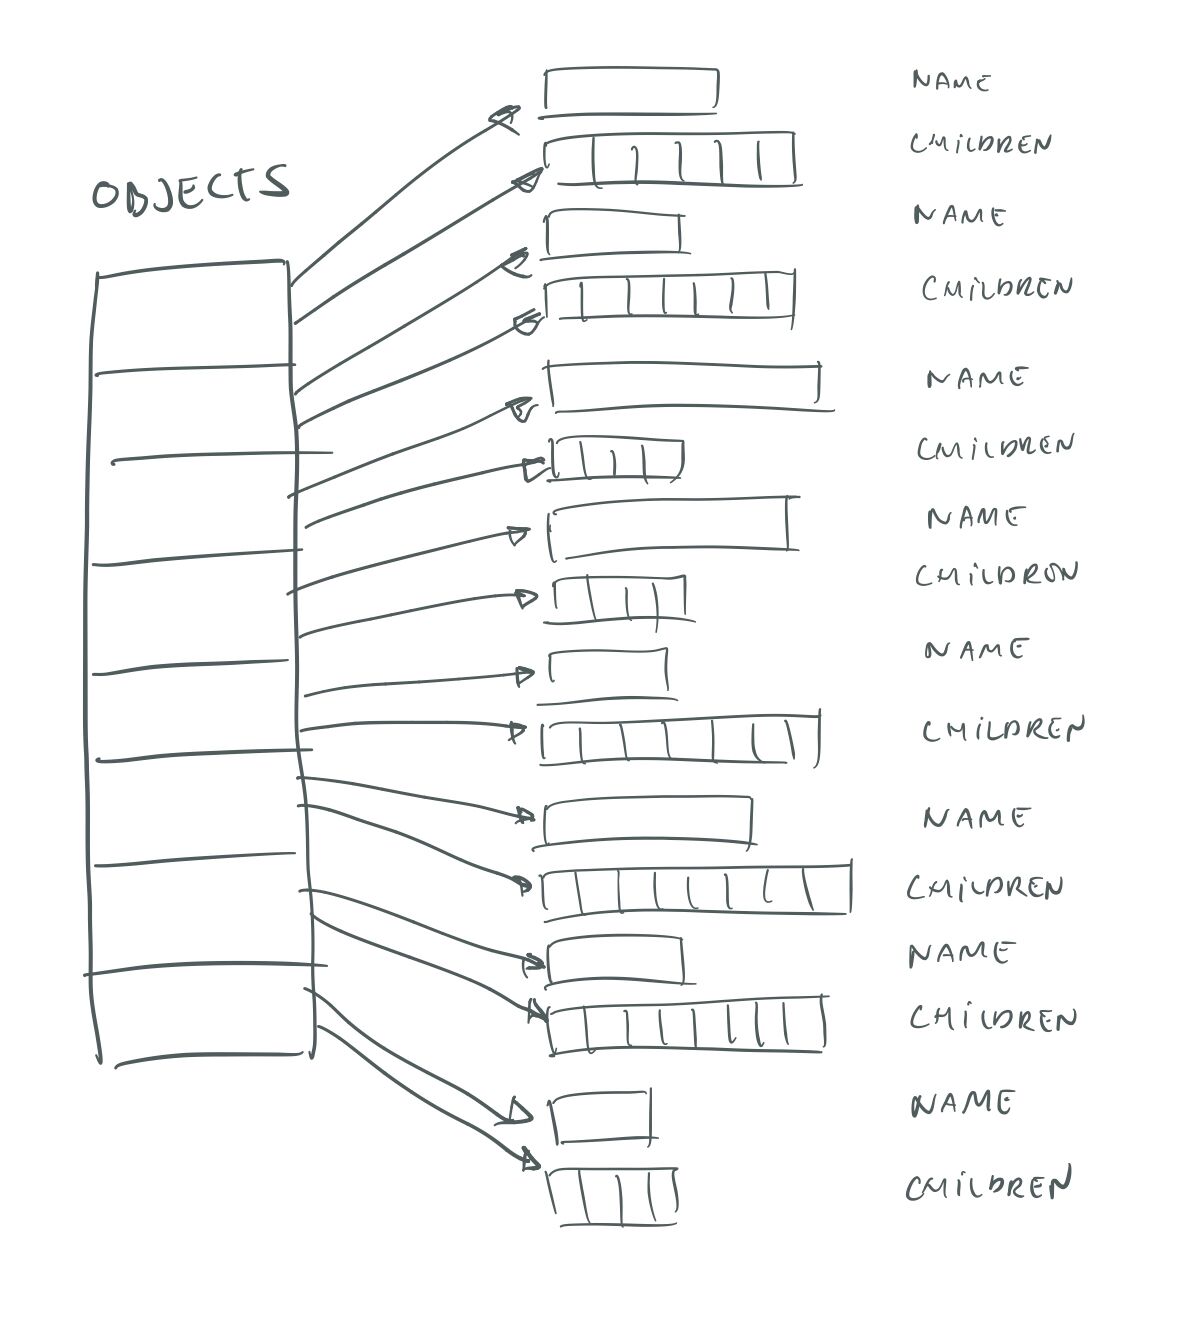 OBJECTS
NAME
CHILDREN
NAME
CHILDREN
NAME
CHILDREN
NAME
CHILDRON
NAME
CHILDREN
NAME
CHILDREN
NAME
CHILDREN
NAME
CHILDREN